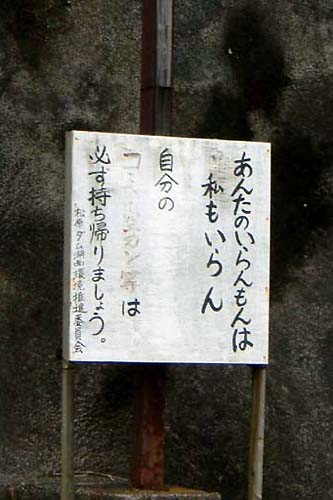 あんたのいらんもんは
私もいらん
自分の
ゴミ カン等は
必ず持ち帰りましょう。
松原ダム湖面環境推進委員会